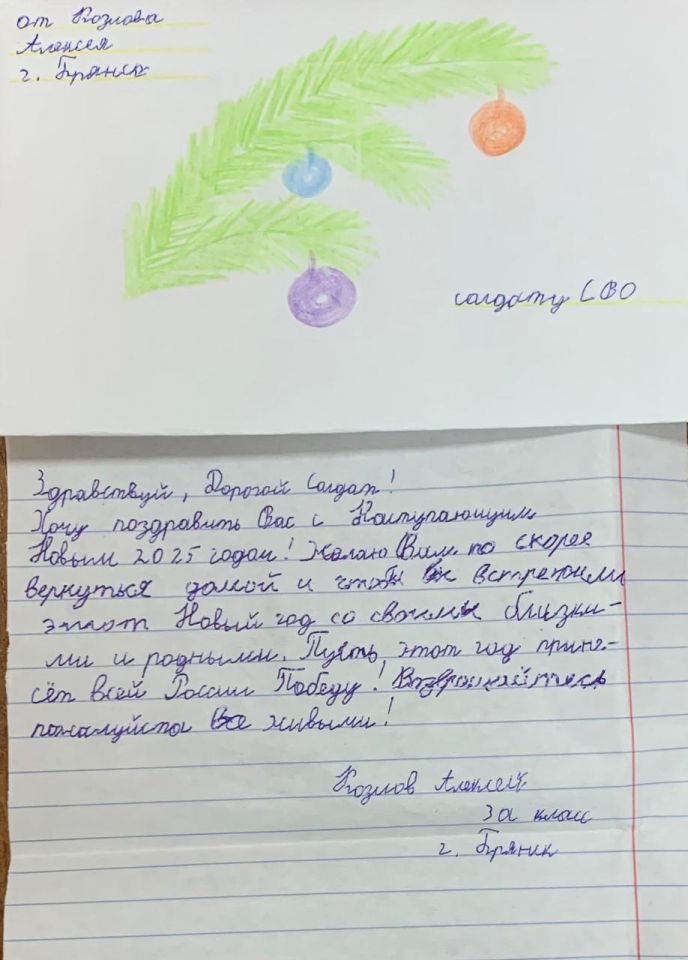 от Козлова
Алексея
г. Брянск
солдату СВО
Здравствуй, Дорогой Солдат!
Хочу поздравить Вас с Наступающим
Новым 2025 годом! Желаю Вам по скорее
вернуться домой и чтобы встретили
этот Новый год со своими близки-
ми и родными. Пусть этот год прине-
сёт всей России Победу! Возвращайтесь
пожалуйста Все живыми!
Козлов Алексей
3а класс
г. Брянк